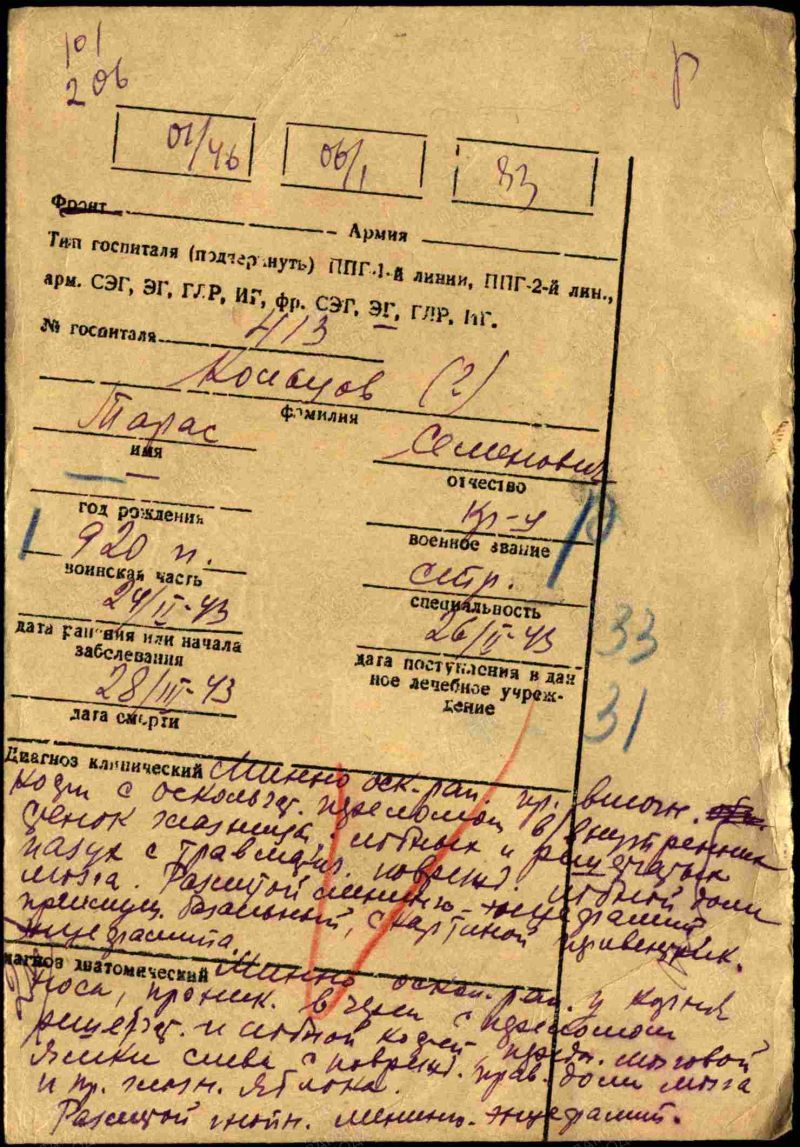 101
206
01/46 06/1 83
Фронт Армия
Тип госпиталя (подчеркнуть) ППГ-1-й линии, ППГ-2-й лин.,
арм. СЭГ, ЭГ, ГЛР, ИГ, фр. СЭГ, ЭГ, ГЛР, ИГ.
№ госпиталя 413
Кольцов (?)
фамилия
Тарас Семенович
имя отчество
— кр-ц
год рождения военное звание
920 п. стр.
воинская часть специальность
24/II-43 26/II-43
дата ранения или начала
заболевания
дата поступления в дан
ное лечебное учреж-
дение
33
31
28/III-43
дата смерти
Диагноз клинический Минно оск. ран. пр.
с оскольчат. переломом внутренних
стенок глазницы, лобных и решетчатых
пазух с травматич. поврежд. лобной доли
мозга. Разлитой менинго-энцефалит
преимущ. базальный, с картиной
энцефалита.
Диагноз анатомический Минно оскол. ран. у корня
носа, проник. в череп с переломом
решетчат. и лобной костей передн. мозговой
ямки слева с поврежд. прав. доли мозга
и пр. глазн. яблока.
Разлитой гнойн. менинго-энцефалит.